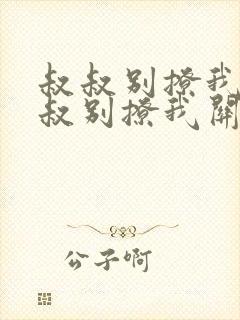 叔叔别撩我
叔别撩我開
公子啊